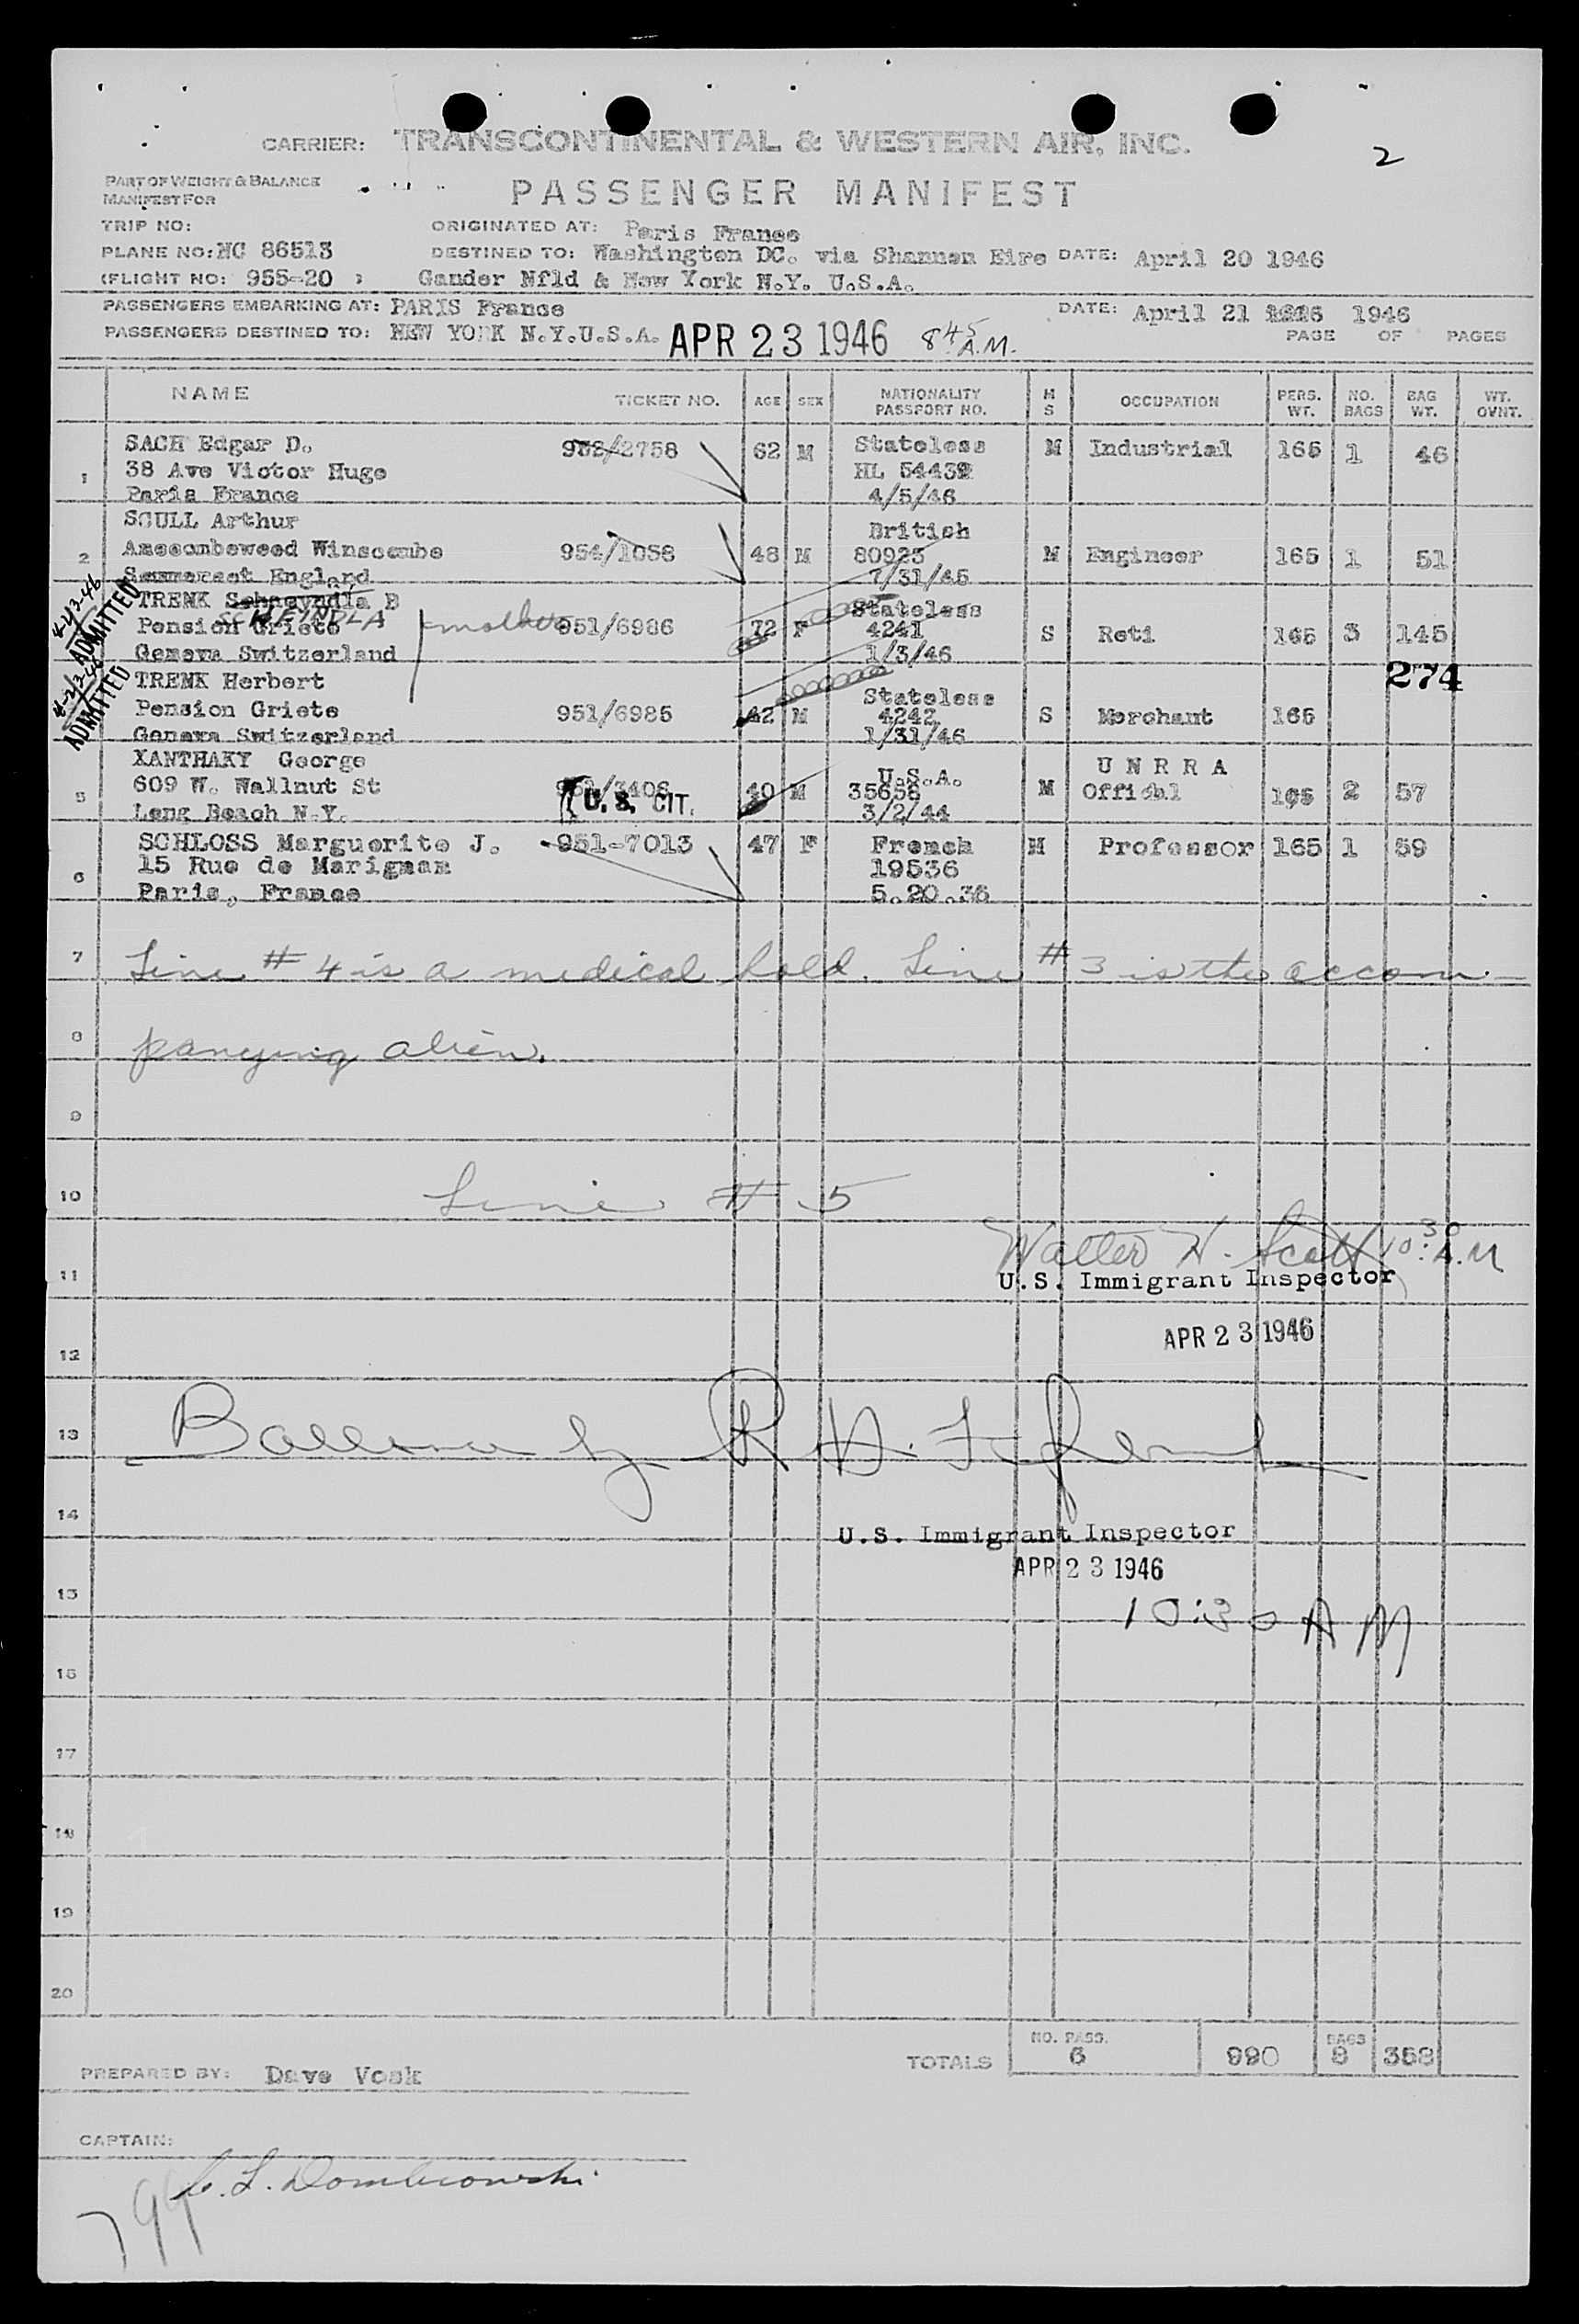 2
CARRIER: TRANSCONTINENTAL & WESTERN AIR, INC.
PART OF WEIGHT & BALANCE
MANIFEST FOR
PASSENGER MANIFEST
TRIP NO: ORIGINATED AT: Paris France
PLANE NO: NC 86513 DESTINED TO: Washington DC. via Shannon Eire DATE: April 20 1946
(FLIGHT NO: 955-20 ) Gander Nfld & New York N.Y. U.S.A.
PASSENGERS EMBARKING AT: PARIS France DATE: April 21 1946
PASSENGERS DESTINED TO: NEW YORK N.Y.U.S.A. APR 23 1946 8 45 A.M. PAGE OF PAGES
NAME TICKET NO. AGE SEX NATIONALITY PASSPORT NO. M S OCCUPATION PERS. WT. NO. BAGS BAG WT. WT. OVNT.
SACH Edgar D. 952/2758 62 M Stateless M Industrial 165 1 46
38 Ave Victor Hugo HL 54432
1 Paris France 4/5/46
SCULL Arthur British
2 Axescombeweed Winscombe 954/1058 48 M 80923 M Engineer 165 1 51
Sommerset England 7/31/45
4-23-46 ADMITTED
TRENK Schneyndla B Stateless
SCHEINDLA
Pension Griete mother 951/6986 72 F 4241 S Reti 165 3 145
Geneva Switzerland 1/3/46
274
4-23-46 ADMITTED
TRENK Herbert Stateless
Pension Griete 951/6985 42 M 4242 S Merchant 165
Geneva Switzerland 1/31/46
XANTHAKY George U.S.A. U N R R A
5 609 W. Wallnut St 951/3408 40 M 35656 M Official 165 2 57
U.S. CIT.
Long Beach N.Y. 3/2/44
SCHLOSS Marguerite J. 951-7013 47 F French M Professor 165 1 59
15 Rue de Marignan 19536
6 Paris, France 5.20.36
7 Line # 4 is a medical hold. Line # 3 is the accom-
8 panying alien.
9
10 Line # 5
Walter H. Scott 10:30 A.M
11 U.S. Immigrant Inspector
APR 23 1946
12
13
14
U.S. Immigrant Inspector
APR 23 1946
15
10:30 AM
16
17
18
19
20
TOTALS NO. PASS. 6 990 BAGS 8 358
PREPARED BY: Dave Vosk
CAPTAIN:
L. Dombrowski
799